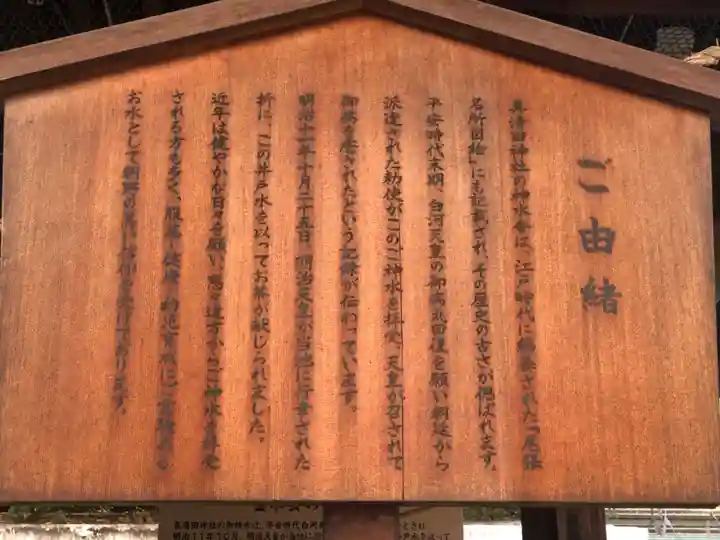 ご由緒
真清田神社の神水舎は、江戸時代に編纂された「尾張
名所図絵」にも記載され、その歴史の古さが偲ばれます。
平安時代末期、白河天皇の御病気回復を願い朝廷から
派遣された勅使がこのご神水を拝受、天皇が召されて
御病を癒されたという記録が伝わっています。
明治十一年十月二十五日、明治天皇が当地に行幸された
折に、この井戸水を以ってお茶が献じられました。
近年は健やかな日々を願い、態々遠方からご神水を
される方も多く、服薬・健康・幼児育成にご霊験
お水として